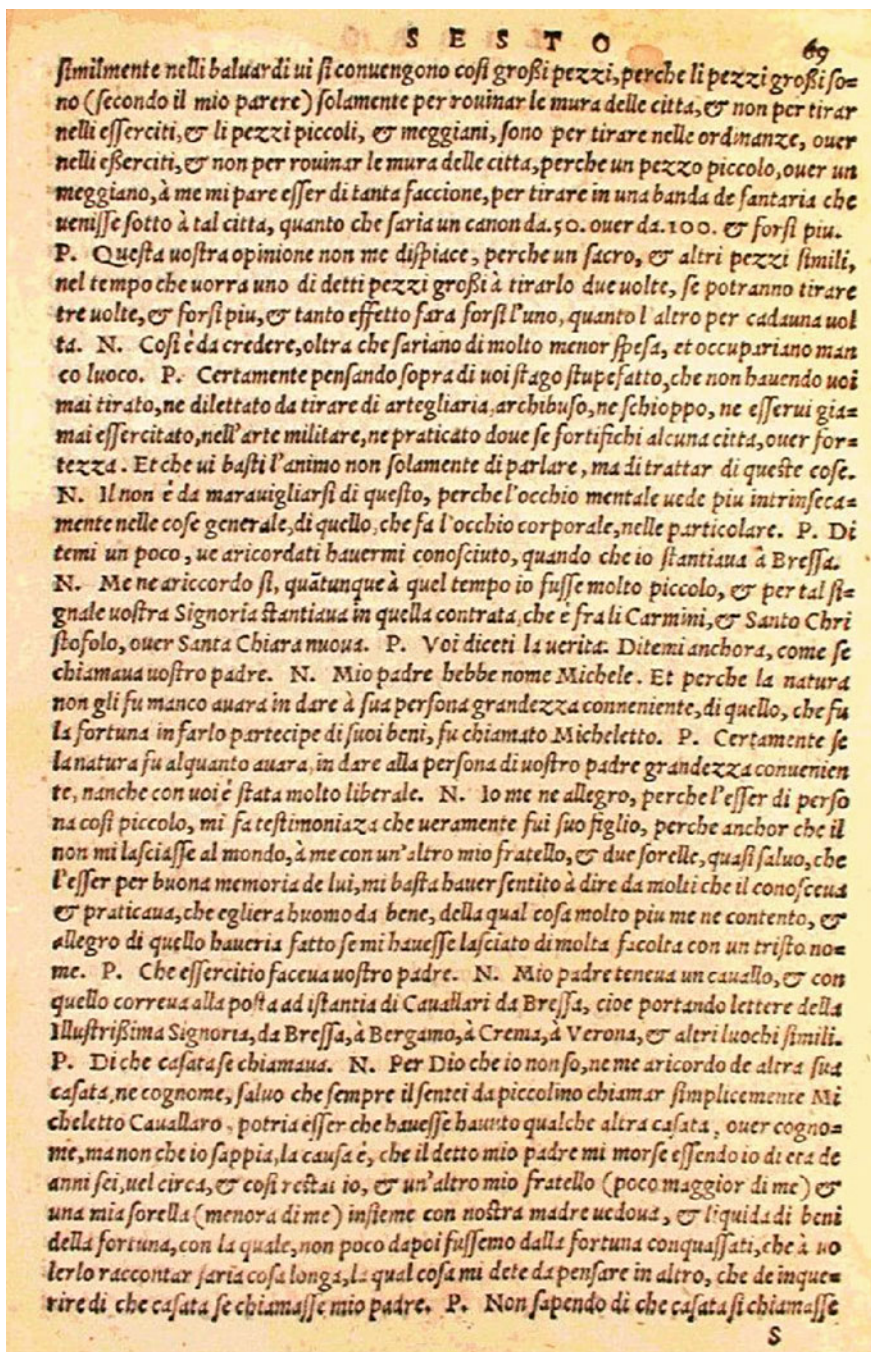 S E S T O 69
ſimilmente nelli baluardi ui ſi conuengono coſi groſſi pezzi, perche li pezzi groſſi ſo=
no (ſecondo il mio parere) ſolamente per rouinar le mura delle citta, & non per tirar
nelli eſſerciti, & li pezzi piccoli, & meggiani, ſono per tirare nelle ordinanze, ouer
nelli eſſerciti, & non per rouinar le mura delle citta, perche un pezzo piccolo, ouer un
meggiano, à me mi pare eſſer di tanta faccione, per tirare in una banda de fantaria che
ueniſſe ſotto à tal citta, quanto che ſaria un canon da.50. ouer da.100. & forſi piu.
P. Queſta uoſtra opinione non me diſpiace, perche un ſacro, & altri pezzi ſimili,
nel tempo che uorra uno di detti pezzi groſſi à tirarlo due uolte, ſe potranno tirare
tre uolte, & forſi piu, & tanto effetto fara forſi l'uno, quanto l altro per cadauna uol
ta. N. Coſi è da credere, oltra che ſariano di molto menor ſpeſa, et occupariano man
co luoco. P. Certamente penſando ſopra di uoi ſtago ſtupefatto, che non hauendo uoi
mai tirato, ne dilettato da tirare di artegliaria, archibuſo, ne ſchioppo, ne eſſerui gia=
mai eſſercitato, nell'arte militare, ne praticato doue ſe fortifichi alcuna citta, ouer for=
tezza. Et che ui baſti l'animo non ſolamente di parlare, ma di trattar di queſte coſe.
N. Il non è da marauigliarſi di queſto, perche l'occhio mentale uede piu intrinſeca=
mente nelle coſe generale, di quello, che fa l'occhio corporale, nelle particolare. P. Di
temi un poco, ue aricordati hauermi conoſciuto, quando che io ſtantiaua à Breſſa.
N. Me ne ariccordo ſi, quãtunque à quel tempo io fuſſe molto piccolo, & per tal ſi=
gnale uoſtra Signoria ſtantiaua in quella contrata, che è fra li Carmini, & Santo Chri
ſtofolo, ouer Santa Chiara nuoua. P. Voi diceti la uerita. Ditemi anchora, come ſe
chiamaua uoſtro padre. N. Mio padre hebbe nome Michele. Et perche la natura
non gli fu manco auara in dare à ſua perſona grandezza conneniente, di quello, che fu
la fortuna in farlo partecipe di ſuoi beni, fu chiamato Micheletto. P. Certamente ſe
la natura fu alquanto auara, in dare alla perſona di uoſtro padre grandezza conuenien
te, nanche con uoi è ſtata molto liberale. N. Io me ne allegro, perche l'eſſer di perſo
na coſi piccolo, mi fa teſtimoniaza che ueramente fui ſuo figlio, perche anchor che il
non mi laſciaſſe al mondo, à me con un'altro mio fratello, & due ſorelle, quaſi ſaluo, che
l'eſſer per buona memoria de lui, mi baſta hauer ſentito à dire da molti che il conoſceua
& praticaua, che egli era huomo da bene, della qual coſa molto piu me ne contento, &
allegro di quello haueria fatto ſe mi haueſſe laſciato di molta facolta con un triſto no=
me. P. Che eſſercitio faceua uoſtro padre. N. Mio padre teneua un cauallo, & con
quello correua alla poſta ad iſtantia di Cauallari da Breſſa, cioe portando lettere della
Illuſtriſſima Signoria, da Breſſa, à Bergamo, à Crema, à Verona, & altri luochi ſimili.
P. Di che caſata ſe chiamaua. N. Per Dio che io non ſo, ne me aricordo de altra ſua
caſata, ne cognome, ſaluo che ſempre il ſentei da piccolino chiamar ſimplicemente Mi
cheletto Cauallaro, potria eſſer che haueſſe hauuto qualche altra caſata, ouer cogno=
me, ma non che io ſappia, la cauſa è, che il detto mio padre mi morſe eſſendo io di eta de
anni ſei, uel circa, & coſi reſtai io, & un'altro mio fratello (poco maggior di me) &
una mia ſorella (menora di me) inſieme con noſtra madre uedoua, & liquida di beni
della fortuna, con la quale, non poco dapoi fuſſemo dalla fortuna conquaſſati, che à uo
lerlo raccontar ſaria coſa longa, la qual coſa mi dete da penſare in altro, che de inque=
rire di che caſata ſe chiamaſſe mio padre. P. Non ſapendo di che caſata ſi chiamaſſe
S